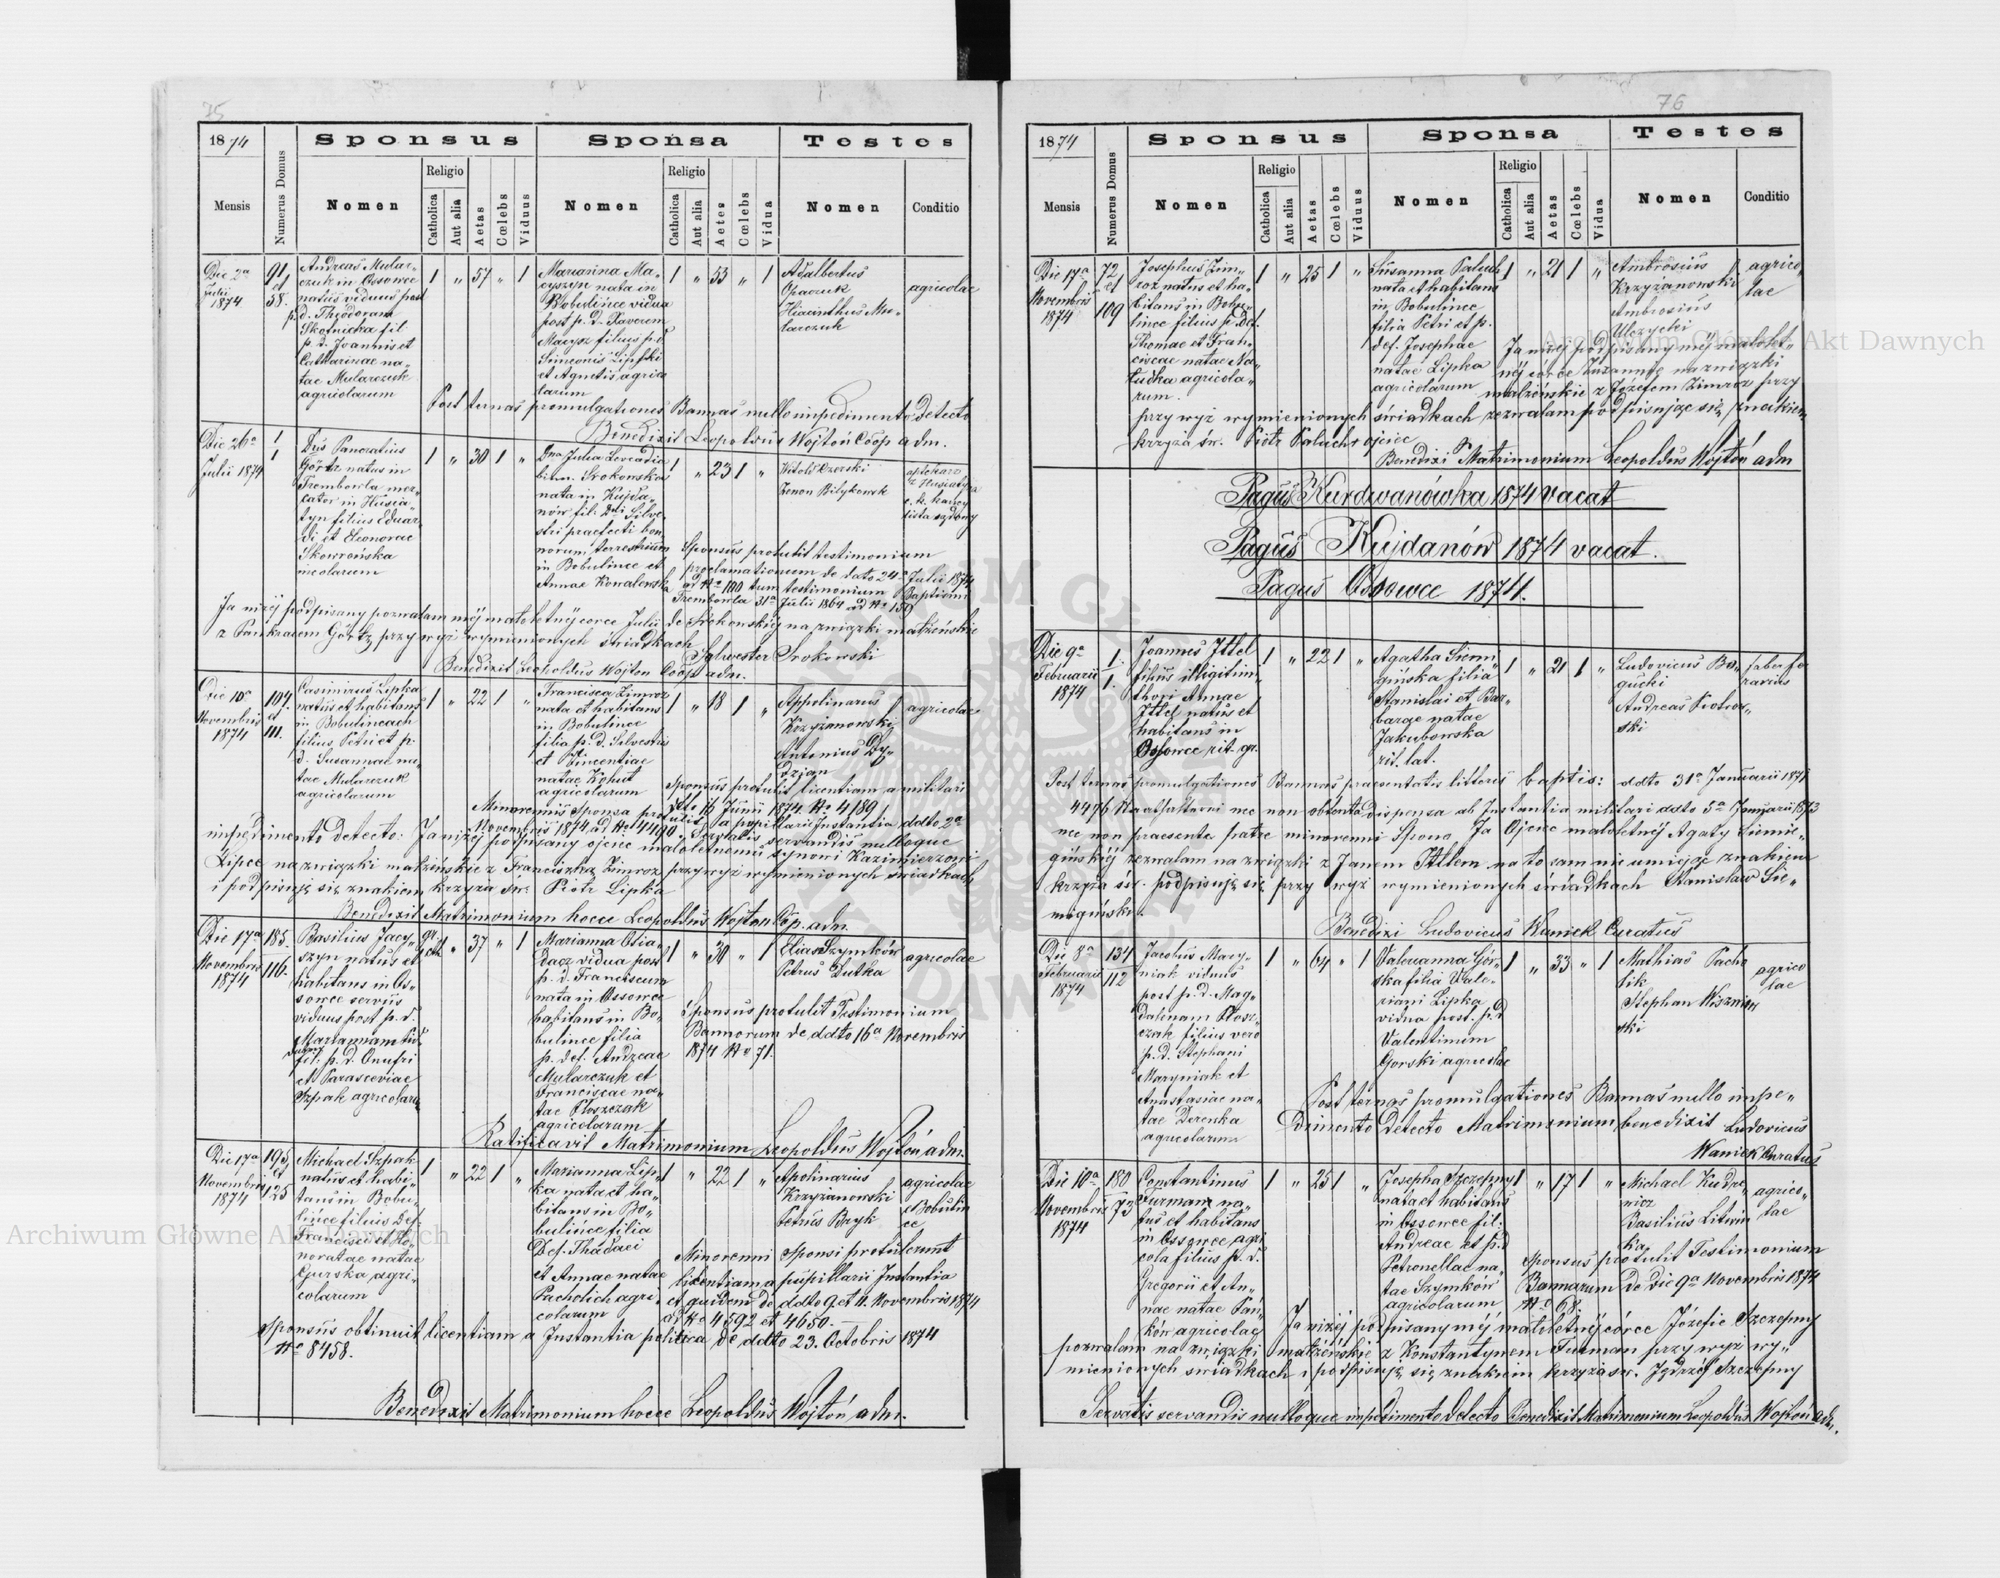 75
1874
Sponsus
Sponsa
Testes
Mensis
Numerus Domus
Nomen
Religio
Catholica
Aut alia
Aetas
Cœlebs
Viduus
Nomen
Religio
Catholica
Aut alia
Aetes
Cœlebs
Vidua
Nomen
Conditio
Die 2a
Julii
1874
91
et
58.
Andreas Mular-
czuk in Ossowce
natus viduus post
p.d. Theodoram
Skotnicka fil.
p. d. Joannis et
Catharinae na-
tae Mularczuk
agricolarum
1 " 57 " 1
Marianna Ma-
cyszyn nata in
Bobulińce vidua
post p. d. Xaverum
Macysz filius p.d.
Simeonis Lipski
et Agnetis agrico
larum
1 " 53 " 1
Adalbertus
Opaczuk
Hiacinthus Mu-
larczuk
agricolae
Post ternas promulgationes Bannas nullo impedimento detecto
Benedixit Leopoldus Wojtoń Coop adm.
Die 26a
Julii 1874
1
1
Dnus Pancratius
Görtz natus in
Trembowla mer-
cator in Husia-
tyn filius Eduar-
di et Eleonorae
Skowrońska
incolarum
1 " 30 1 "
Dna Julia Leocadia
bi.n. Srokowska
nata in Kujda-
nów fil. Dni Silve-
stri praefecti bo-
norum terrestrium
in Bobulince et
Annae Kowalewska
1 " 23 1 "
Witold Ozerski
Zenon Bilykowsk
Sponsus protulit testimonium
proclamationum de dato 24a Julii 1874
ad No 100 tum testimonium Baptismi
Trembowla 31a Julii 1864 ad No 159
Ja niżej podpisany pozwalam mej małoletnéj corce Julii de Srokowskiéj na związki małżeńskie
z Pankracem Görtz przy wyż wymienionych świadkach
Sylwester Srokowski
Benedixit Leopoldus Wojton Coop adm.
Die 10a
Novembris
1874
104
et
111.
Casimirus Lipka
natus et habitans
in Bobulincach
filius Petri et p.
d. Susannae na-
tae Mularczuk
agricolarum
1 " 22 1 "
Francisca Zimroz
nata et habitans
in Bobulince
filia p. d. Silvestris
et Vincentiae
natae Kohut
agricolarum
1 " 18 1 "
Appolinarus
Krzyżanowski
Antonius Dy-
dzian
agricolae
Sponsus protulit licentiam a militari
ddto 16 Junii 1874 No 4189
Minorennis Sponsa protulit a pupillari Instantia ddto 2a
Novembris 1874 ad No 4490 Servatis servandis nulloque
impedimento detecto. Ja niżéj podpisany ojciec małoletniemu synowi Kazimierzowi
Lipce na związki małżeńskie z Franciszką Zimroz przy wyż wymienionych świadkach
i podpisuję się znakiem krzyża św. Piotr Lipka
Benedixit Matrimonium hocce Leopoldus Wojton Cop. adm.
Die 17a
Novembris
1874
185.
116.
Basilius Jacy-
szyn natus et
habitans in Os-
sowce servus
viduus post p. d.
Mariannam
fil. p. d. Onufri
et Parasceviae
Szpak agricolarum
gr. cath " 37 " 1
Marianna Osia-
dacz vidua post
p. d. Franciscum
nata in Ossowce
habitans in Bo-
bulince filia
p. def. Andreae
Mularczuk et
Franciscae na-
tae Płoszczak
agricolarum
1 " 30 " 1
Elias Szymków
Petrus Dutka
agricolae
Sponsus protulit Testimonium
Bannorum de ddto 16a Novembris
1874 No 71.
Ratificavit Matrimonium Leopoldus Wojtoń adm.
Die 17a
Novembris
1874
195
et
125
Michael Szpak
natus et habi-
tans in Bobu-
lince filius Def.
Francisci et Ho-
noratae natae
Gurska agri-
colarum
1 " 22 1 "
Marianna Lip-
ka nata et ha-
bitans in Bo-
bulińce filia
Def. Thadaei
et Annae natae
Pacholich agri-
colarum
1 " 22 1 "
Apolinarius
Krzyżanowski
Petrus Bryk
agricolae
e Bobulin
ce
Minorenni Sponsi protulerunt
licentiam a pupillarii Instantia
et quidem de ddto 9 et 11. Novembris 1874
ad No 4592 et 4650.
Sponsus obtinuit licentiam a Instantia politica de ddto 23. Octobris 1874
No 8458.
Benedixit Matrimonium hocce Leopoldus Wojtoń adm.
76
1874
Sponsus
Sponsa
Testes
Mensis
Numerus Domus
Nomen
Religio
Catholica
Aut alia
Aetas
Cœlebs
Viduus
Nomen
Religio
Catholica
Aut alia
Aetas
Cœlebs
Vidua
Nomen
Conditio
Die 17a
Novembris
1874
72
et
109
Josephus Zim-
roz natus et ha-
bitans in Bobu-
lince filius p. def.
Thomae et Fran-
ciscae natae Na-
ludka agricola-
rum.
1 " 25 1 "
Susanna Paluch
nata et habitans
in Bobulince
filia Petri et p.
def. Josephae
natae Lipka
agricolarum
1 " 21 1 "
Ambrosius
Krzyżanowski
Ambrosius
Ulczycki
agrico-
lae
Ja niżej podpisany mej małolet-
néj corce Zuzannie na związki
małżeńskie z Józefem Zimroz przy
przy wyż wymienionych świadkach zezwalam podpisując się znakiem
krzyża św. Piotr Paluch + ojciec
Benedixi Matrimonium Leopoldus Wojtoń adm
Pagus Kurdwanówka 1874 vacat
Pagus Kujdanów 1874 vacat.
Pagus Ossowce 1874.
Die 9a
Februarii
1874
1.
1.
Joannes Ittel
filius illigitimi
thori Annae
Ittel natus et
habitans in
Ossowce rit. gr.
1 " 22 1 "
Agatha Siemi-
gińska filia
Stanislai et Bar-
barae natae
Jakubowska
rit. lat.
1 " 21 1 "
Ludovicus Bo-
gucki
Andreas Piotrow-
ski
faber fe
rarius
Post ternas promulgationes Bannas praesentatis litteris baptis: ddto 31a Januarii 1874
nec non obtenta dispensa ab Instantia militari ddto 5a Januarii 1873
nec non praesente patre minorenni Sponsa Ja Ojciec małoletnéj Agaty Siemie-
gińskiéj zezwalam na związki z Janem Ittlem na to sam nie umiejąc znakiem
krzyża św. podpisuję się przy wyż wymienionych świadkach Stanisław Sie-
migiński.
Benedixi Ludovicus Waniek Curatus
Die 8a
Februarii
1874
134
112
Jacobus Mary-
niak viduus
post p. d. Mag-
dalenam Płosz-
czak filius vero
p. d. Stephani
Maryniak et
Anastasiae na-
tae Derenka
agricolarum
1 " 64 " 1
Valeuanna Gór-
ska filia Vale-
riani Lipka
vidua post. p.d.
Valentinum
Gorski agricolae
1 " 33 " 1
Mathias Pach-
lik
Stephan Wiszniew-
ski
agrico
lae
Post ternas promulgationes Bannas nullo impe-
dimento detecto Matrimonium benedixit Ludovicus
Waniek Curatus
Die 10a
Novembris
1874
180
73
Constantinus
Furman na-
tus et habitans
in Ossowce agri
cola filius p. d.
Gregorii et An-
nae natae Pań-
ków agricolae
1 " 25 1 "
Josepha Szczepny
nata et habitans
in Ossowce fil.
Andreae et p.d.
Petronellae na-
tae Szymków
agricolarum
1 " 17 1 "
Michael Kudre-
wicz
Basilius Litwin
ka
agrico-
lae
Sponsus protulit Testimonium
Bannarum de die 9a Novembris 1874
No 68.
Ja niżej podpisany méj małoletnéj córce Józefie Szczepny
pozwalam na związki małżeńskie z Konstantynem Furman przy wyż wy-
mienionych świadkach i podpisuję się znakiem krzyża św. Jędrzéj Szczepny
Servatis servandis nulloque impedimento detecto Benedixit Matrimonium Leopoldus Wojtoń adm.
Archiwum Główne Akt Dawnych
Archiwum Główne Akt Dawnych